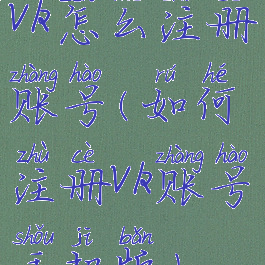 VK怎么注册
zhàng hào rú hé
账号(如何
zhù cè zhàng hào
注册VK账号
shǒu jī bǎn
手机版)